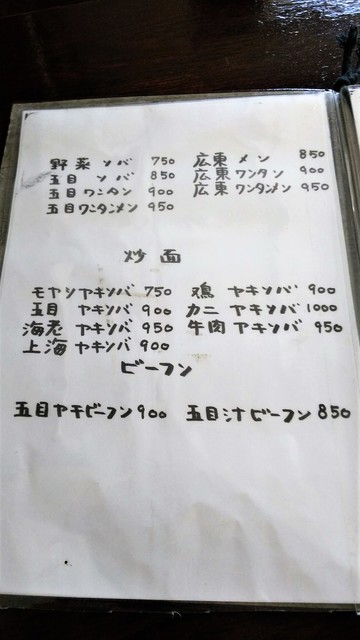 野菜ソバ 750 広東メン 850
五目ソバ 850 広東ワンタン 900
五目ワンタン 900 広東ワンタンメン 950
五目ワンタンメン 950
炒面
モヤシヤキソバ 750 鶏ヤキソバ 900
五目ヤキソバ 900 カニヤキソバ 1000
海老ヤキソバ 950 牛肉ヤキソバ 950
上海ヤキソバ 900
ビーフン
五目ヤキビーフン 900 五目汁ビーフン 850